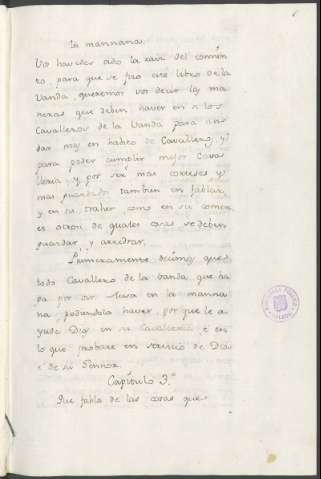 la mannana.
Vos havedes oído la raçon del comien
ço, para que se fizo este libro de la
Vanda, queremos vos decir las ma
neras que deben haver en si los
Cavalleros de la Vanda para an
dar mas en habito de Cavallero, y
para poder cumplir mejor Cava
lleria, y por ser mas corteses y
mas guardados tambien en fablar,
y en su traher, como en su comer,
es otrosi de quales cosas se deben
guardar, y arredrar.
Primeramente decimos que
todo Cavallero de la Vanda que ha
ya por oir Missa en la manna
na, podiendola haver, por que le a
yude Dios en su Cavalleria e en
lo que probare en servicio de Dios
e de su Sennor.
Capitulo 3.º
Que fabla de las cosas que